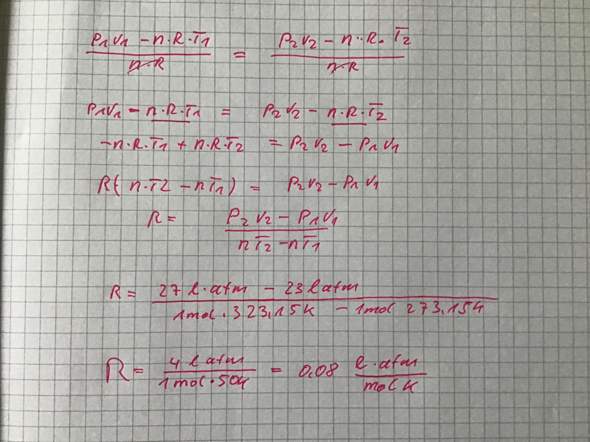 P₁V₁ - n·R·T₁ / n·R = P₂V₂ - n·R·T₂ / n·R
P₁V₁ - n·R·T₁ = P₂V₂ - n·R·T₂
-n·R·T₁ + n·R·T₂ = P₂V₂ - P₁V₁
R(n·T2 - nT₁) = P₂V₂ - P₁V₁
R = P₂V₂ - P₁V₁ / nT₂ - nT₁
R = 27 l·atm - 23 l atm / 1mol·323,15K - 1mol 273,15K
R = 4 l atm / 1mol·50K = 0,08 l·atm / mol K